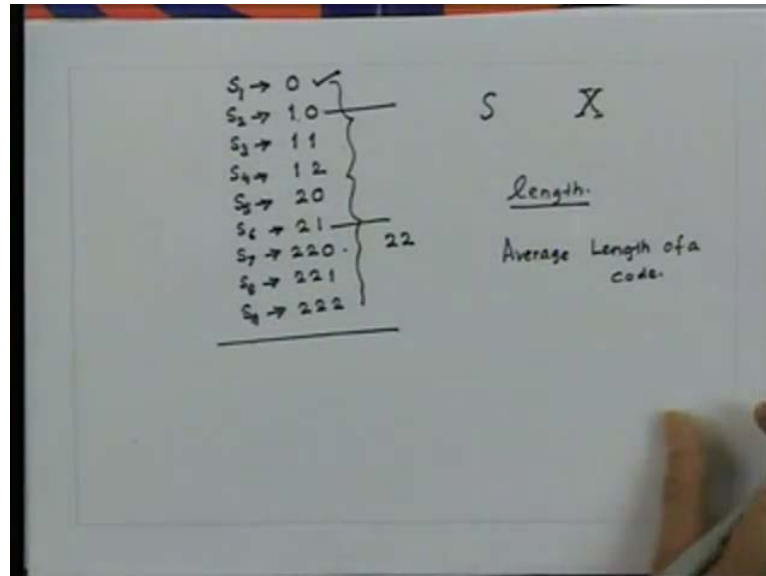 S1 → 0 ✓
S2 → 10
S3 → 11
S4 → 12
S5 → 20
S6 → 21
S7 → 220.
S8 → 221
S9 → 222
22
S X
length.
Average Length of a
code.